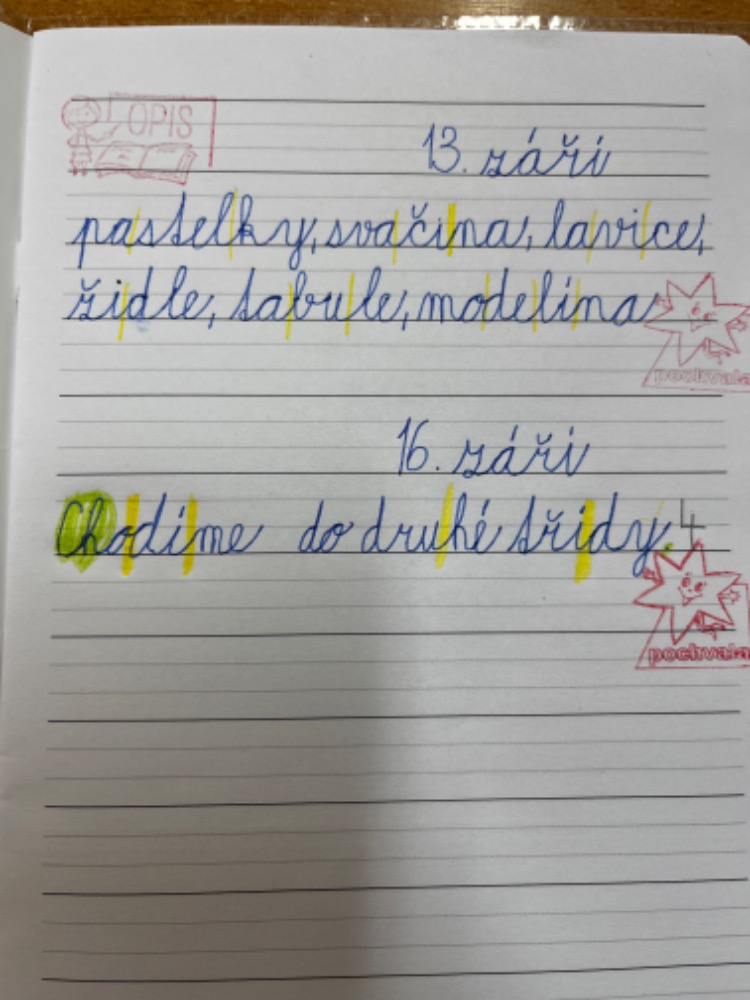 OPIS
13. září
pastelky, svačina, lavice,
židle, tabule, modelína
pochvala
16. září
Chodíme do druhé třídy. 4
pochvala